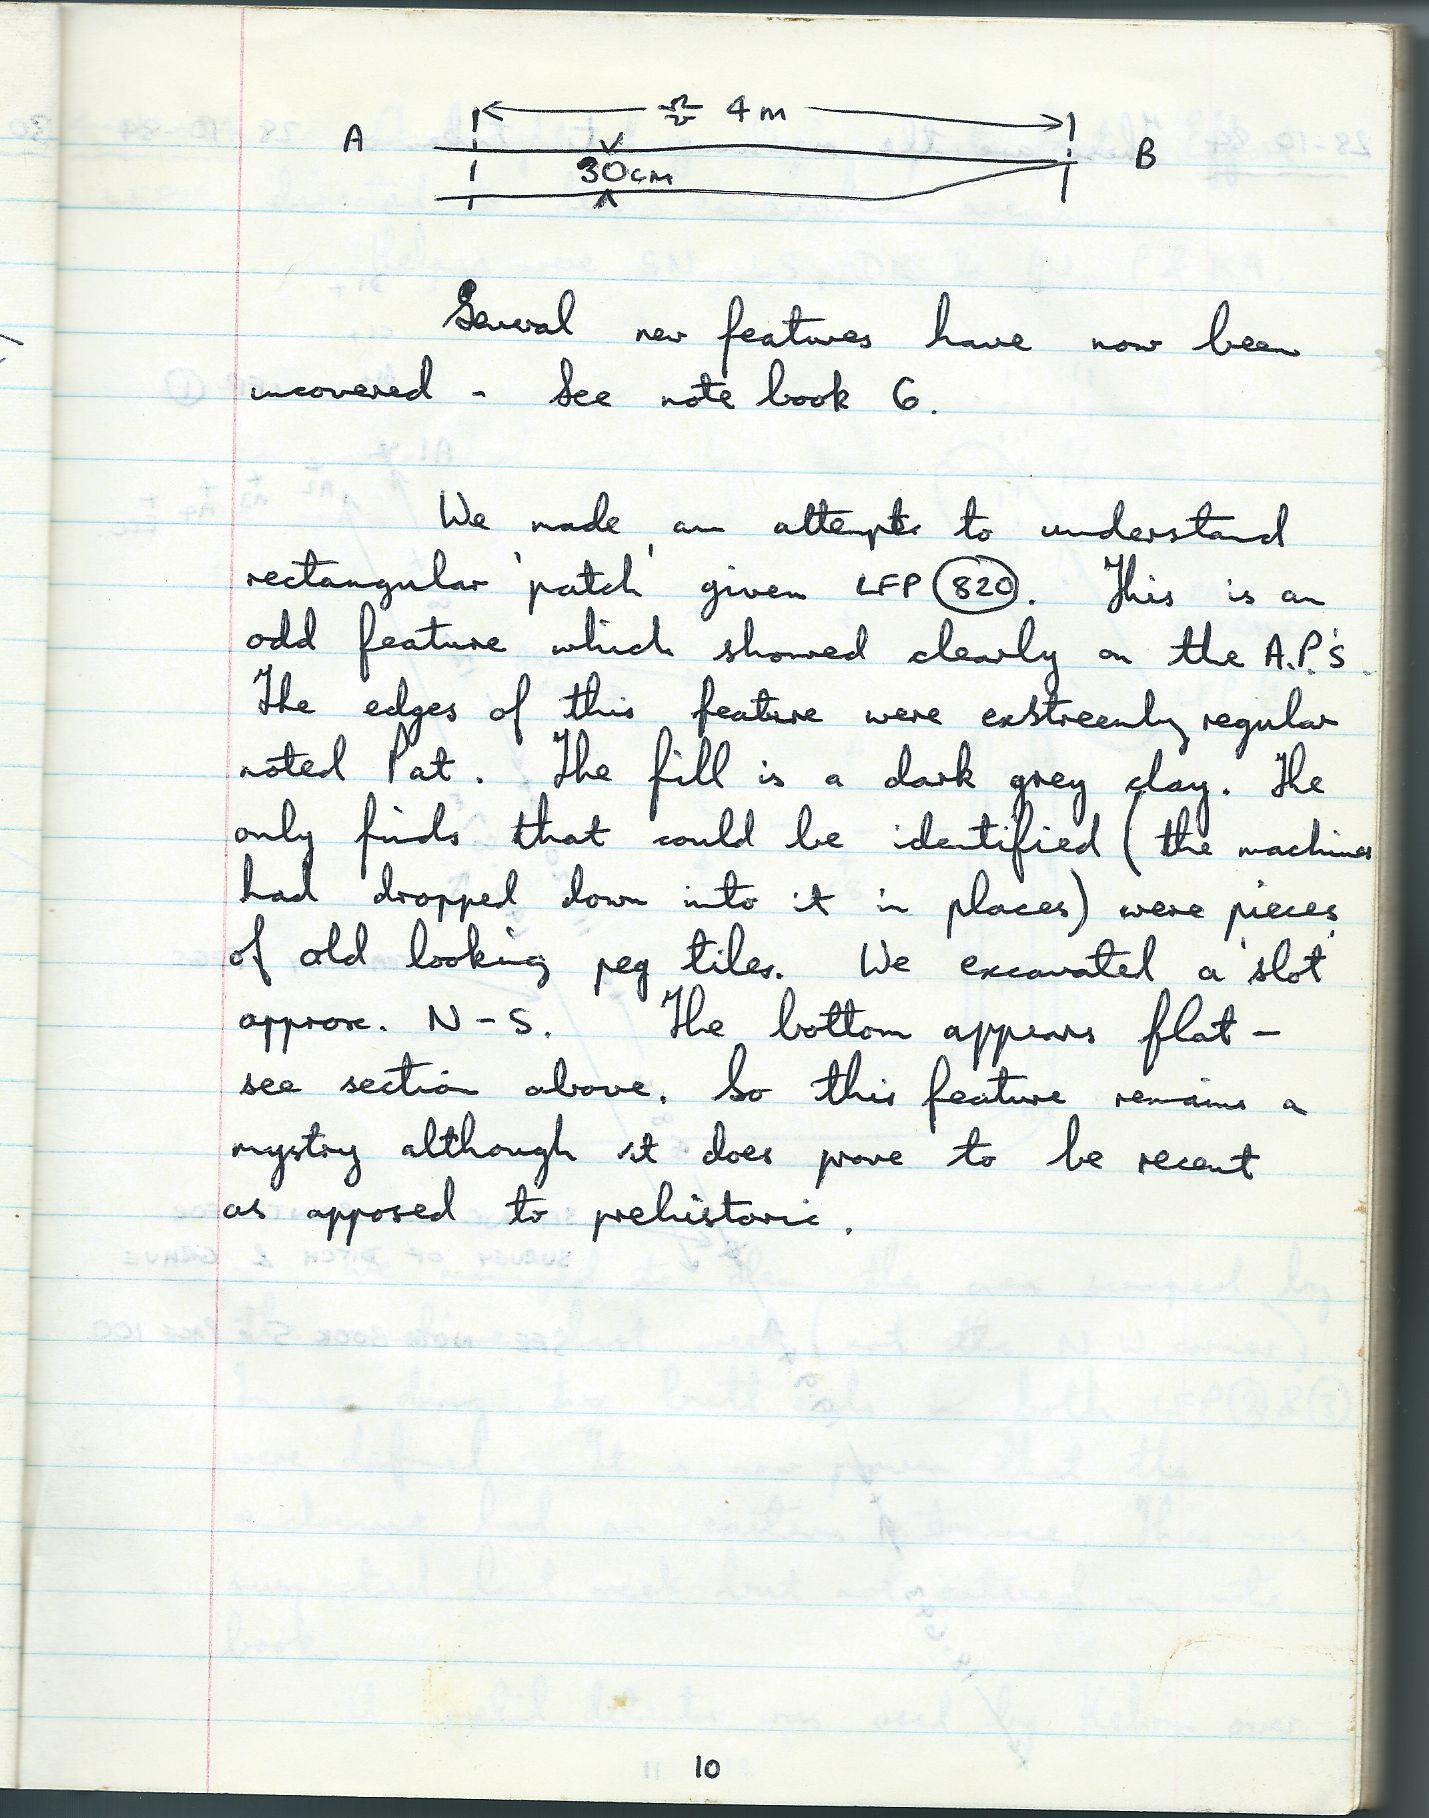 ≈ 4 m
A B
30cm
Several new features have now been
uncovered - See note book 6.
We made an attempt to understand
rectangular 'patch' given LFP 820. This is an
odd feature which showed clearly on the A.P.'s.
The edges of this feature were exstreemly regular
noted Pat. The fill is a dark grey clay. The
only finds that could be identified (the machines
had dropped down into it in places) were pieces
of old looking peg tiles. We excavated a 'slot'
approx. N-S. The bottom appears flat -
see section above. So this feature remains a
mystry although it does prove to be recent
as apposed to prehistoric.
10